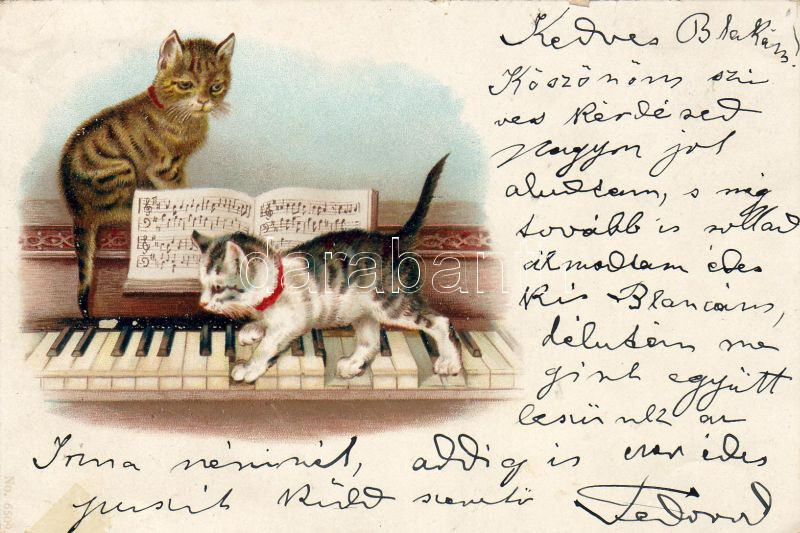 Kedves Blankám!
Köszönöm szi
ves kérdésed
Nagyon jól
aludtam, s míg
tovább is rollad
álmodtam édes
kis Blancám,
délután me
gint együtt
leszünk az
Irma néninél, addig is ezer édes
puszit küld szerető
darabanth
No. 6509